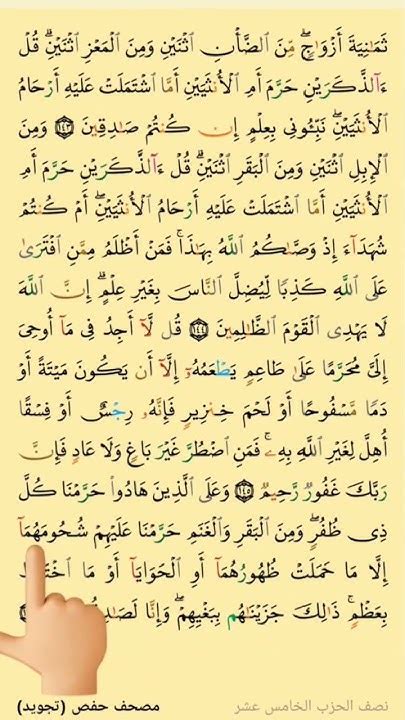 ثَمَٰنِيَةَ أَزۡوَٰجٖۖ مِّنَ ٱلضَّأۡنِ ٱثۡنَيۡنِ وَمِنَ ٱلۡمَعۡزِ ٱثۡنَيۡنِۗ قُلۡ
ءَآلذَّكَرَيۡنِ حَرَّمَ أَمِ ٱلۡأُنثَيَيۡنِ أَمَّا ٱشۡتَمَلَتۡ عَلَيۡهِ أَرۡحَامُ
ٱلۡأُنثَيَيۡنِۖ نَبِّـُٔونِي بِعِلۡمٍ إِن كُنتُمۡ صَٰدِقِينَ ١٤٣ وَمِنَ
ٱلۡإِبِلِ ٱثۡنَيۡنِ وَمِنَ ٱلۡبَقَرِ ٱثۡنَيۡنِۗ قُلۡ ءَآلذَّكَرَيۡنِ حَرَّمَ أَمِ
ٱلۡأُنثَيَيۡنِ أَمَّا ٱشۡتَمَلَتۡ عَلَيۡهِ أَرۡحَامُ ٱلۡأُنثَيَيۡنِۖ أَمۡ كُنتُمۡ
شُهَدَآءَ إِذۡ وَصَّىٰكُمُ ٱللَّهُ بِهَٰذَاۚ فَمَنۡ أَظۡلَمُ مِمَّنِ ٱفۡتَرَىٰ
عَلَى ٱللَّهِ كَذِبٗا لِّيُضِلَّ ٱلنَّاسَ بِغَيۡرِ عِلۡمٍۚ إِنَّ ٱللَّهَ
لَا يَهۡدِي ٱلۡقَوۡمَ ٱلظَّٰلِمِينَ ١٤٤ قُل لَّآ أَجِدُ فِي مَآ أُوحِيَ
إِلَيَّ مُحَرَّمًا عَلَىٰ طَاعِمٖ يَطۡعَمُهُۥٓ إِلَّآ أَن يَكُونَ مَيۡتَةً أَوۡ
دَمٗا مَّسۡفُوحًا أَوۡ لَحۡمَ خِنزِيرٖ فَإِنَّهُۥ رِجۡسٌ أَوۡ فِسۡقًا
أُهِلَّ لِغَيۡرِ ٱللَّهِ بِهِۦۚ فَمَنِ ٱضۡطُرَّ غَيۡرَ بَاغٖ وَلَا عَادٖ فَإِنَّ
رَبَّكَ غَفُورٞ رَّحِيمٞ ١٤٥ وَعَلَى ٱلَّذِينَ هَادُواْ حَرَّمۡنَا كُلَّ
ذِي ظُفُرٖۖ وَمِنَ ٱلۡبَقَرِ وَٱلۡغَنَمِ حَرَّمۡنَا عَلَيۡهِمۡ شُحُومَهُمَآ
إِلَّا مَا حَمَلَتۡ ظُهُورُهُمَآ أَوِ ٱلۡحَوَايَآ أَوۡ مَا
بِعَظۡمٖۚ ذَٰلِكَ جَزَيۡنَٰهُم بِبَغۡيِهِمۡۖ وَإِنَّا
نصف الحزب الخامس عشر
مصحف حفص (تجويد)